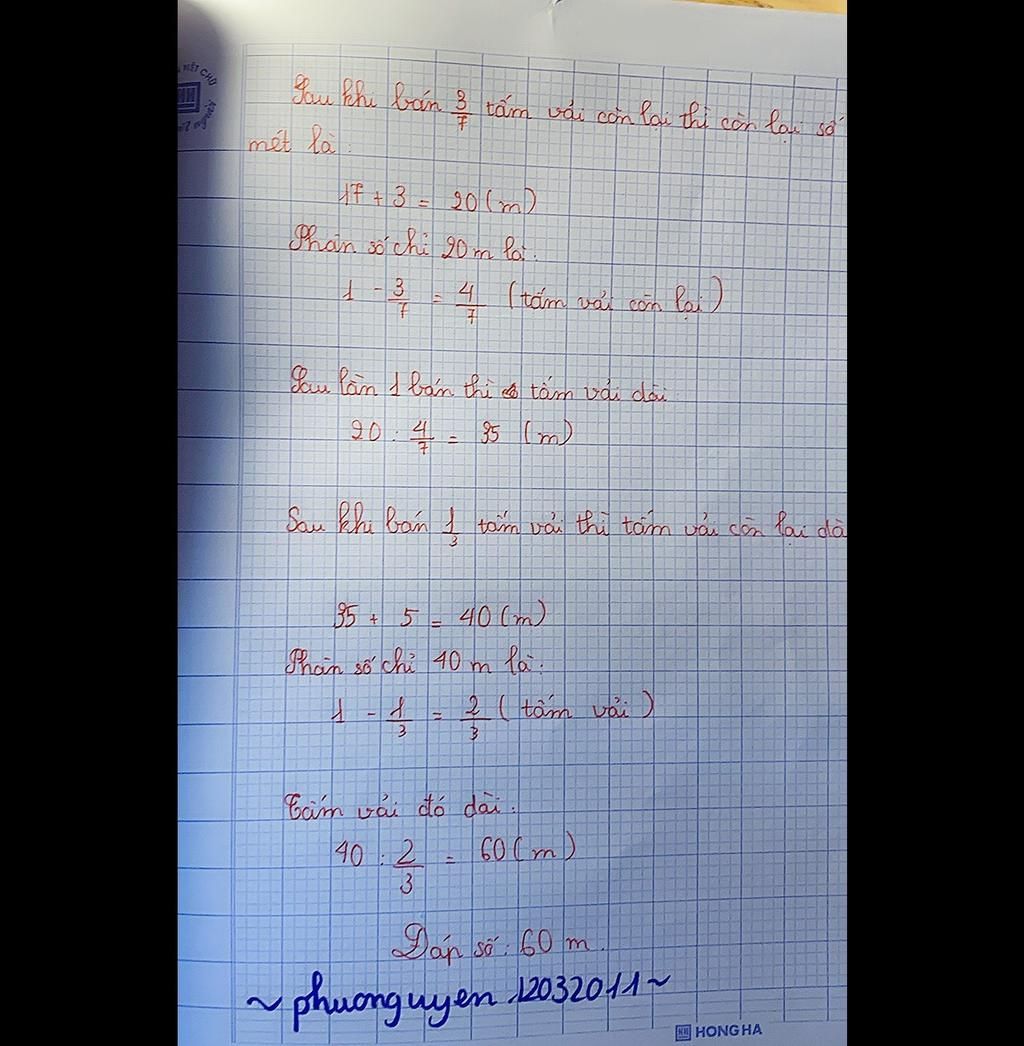 Sau khi bán 3/7 tấm vải còn lại thì còn lại số
mét là:
17 + 3 = 20 (m)
Phân số chỉ 20 m là:
1 - 3/7 = 4/7 (tấm vải còn lại)
Sau lần 1 bán thì tấm vải dài
20 : 4/7 = 35 (m)
Sau khi bán 1/3 tấm vải thì tấm vải còn lại dà
35 + 5 = 40 (m)
Phân số chỉ 40 m là:
1 - 1/3 = 2/3 (tấm vải)
Tấm vải đó dài:
40 : 2/3 = 60 (m)
Đáp số: 60 m.
~ phuonguyen 12032011 ~
HONG HA